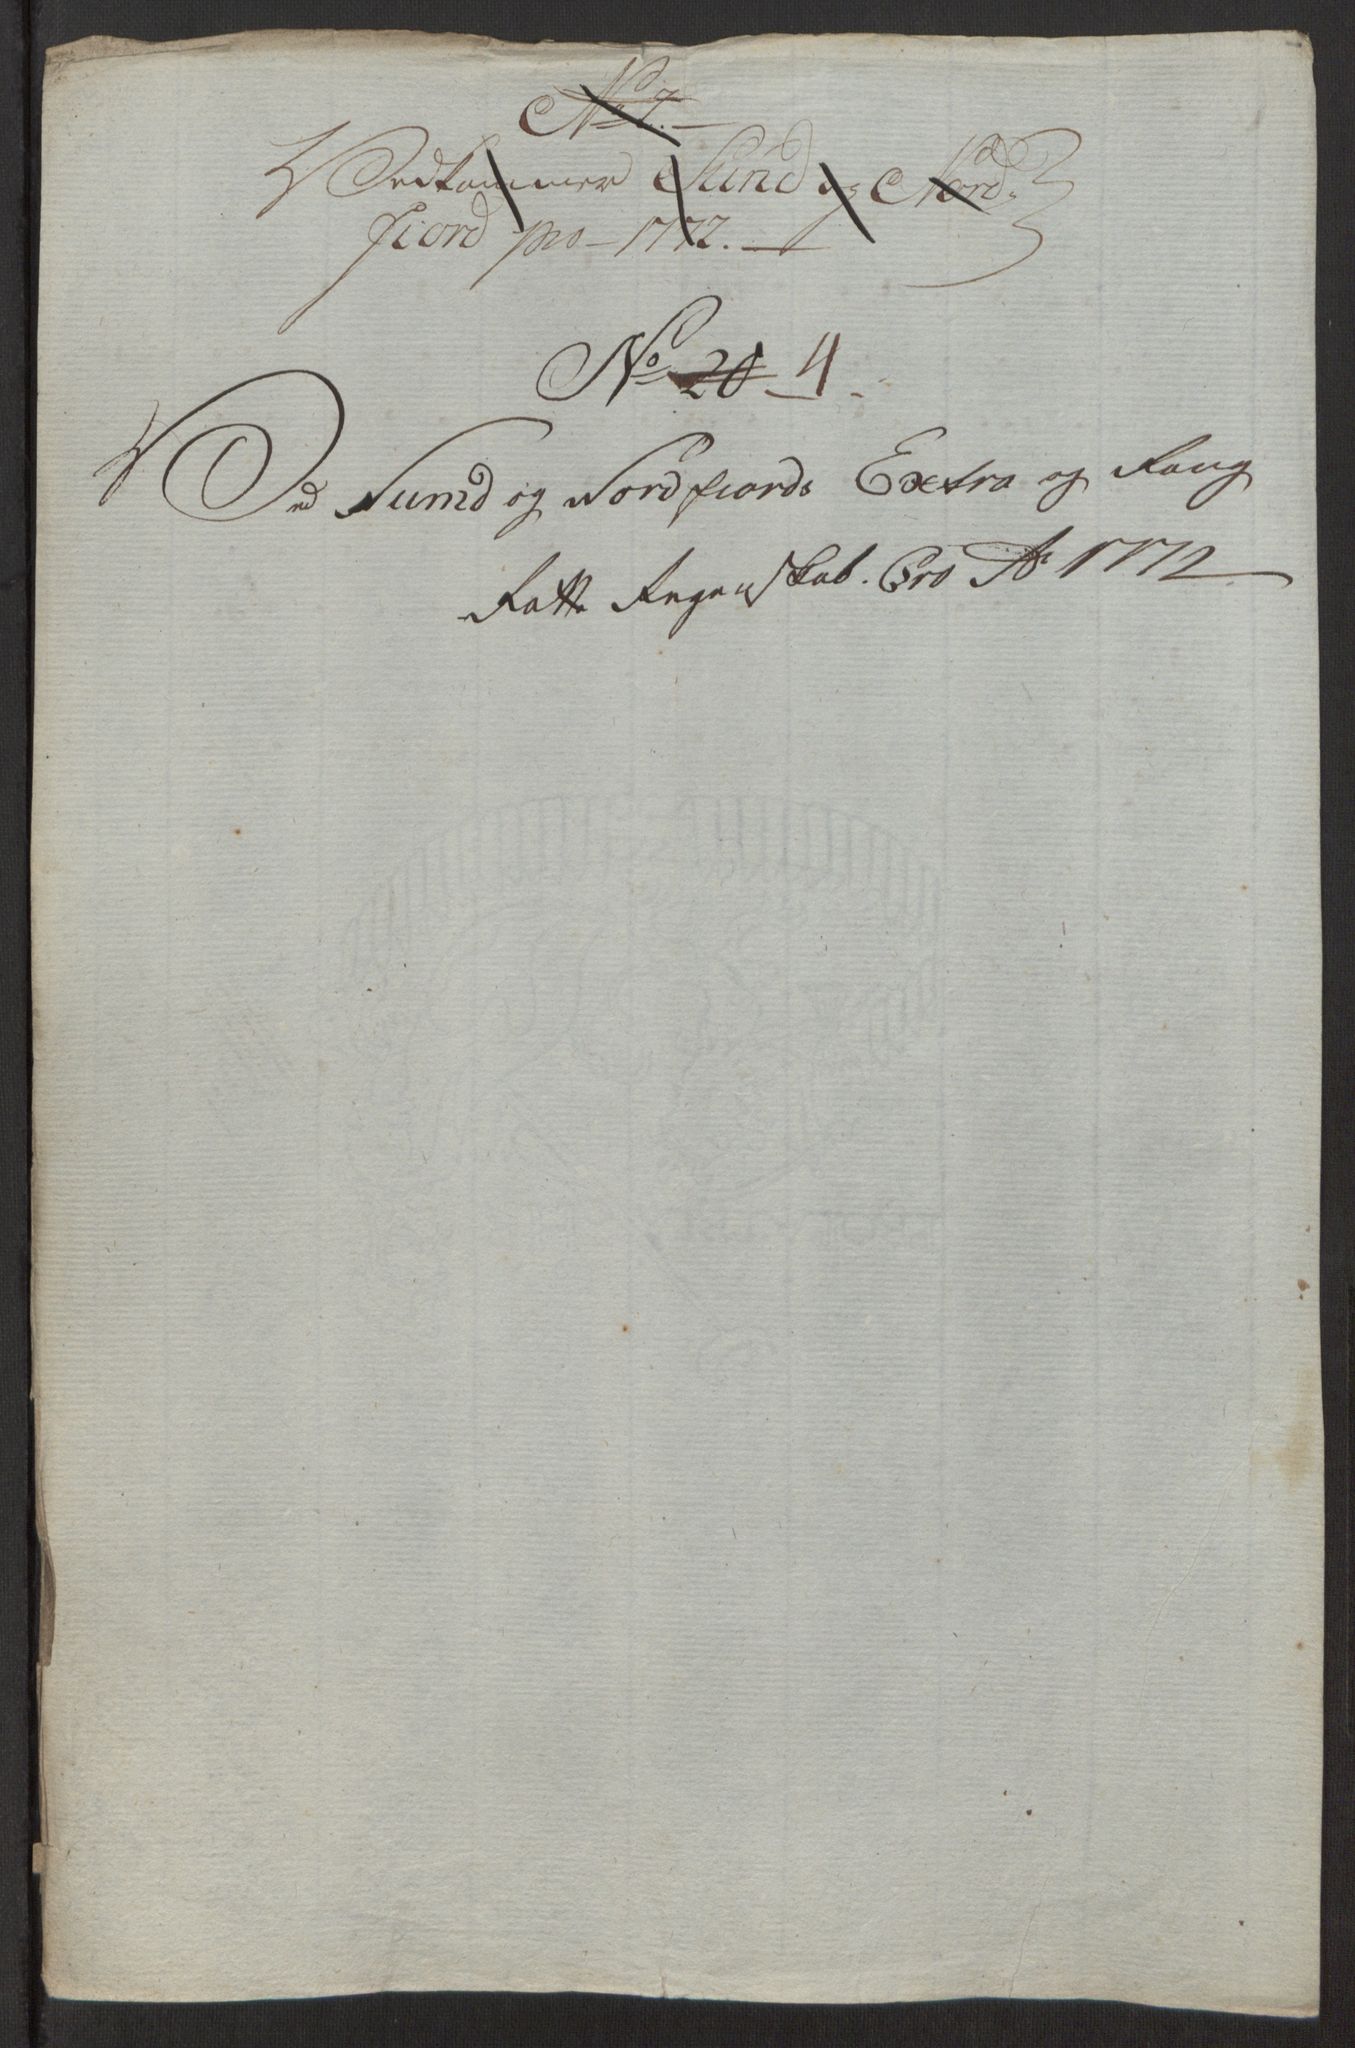 No 7.
Vedkommer Sund og Nord-
fiord pro 1772.
No 20 4.
Ved Sund og Nordfiords Extra og Rang
Skatte Regenskab. Pro Ao 1772